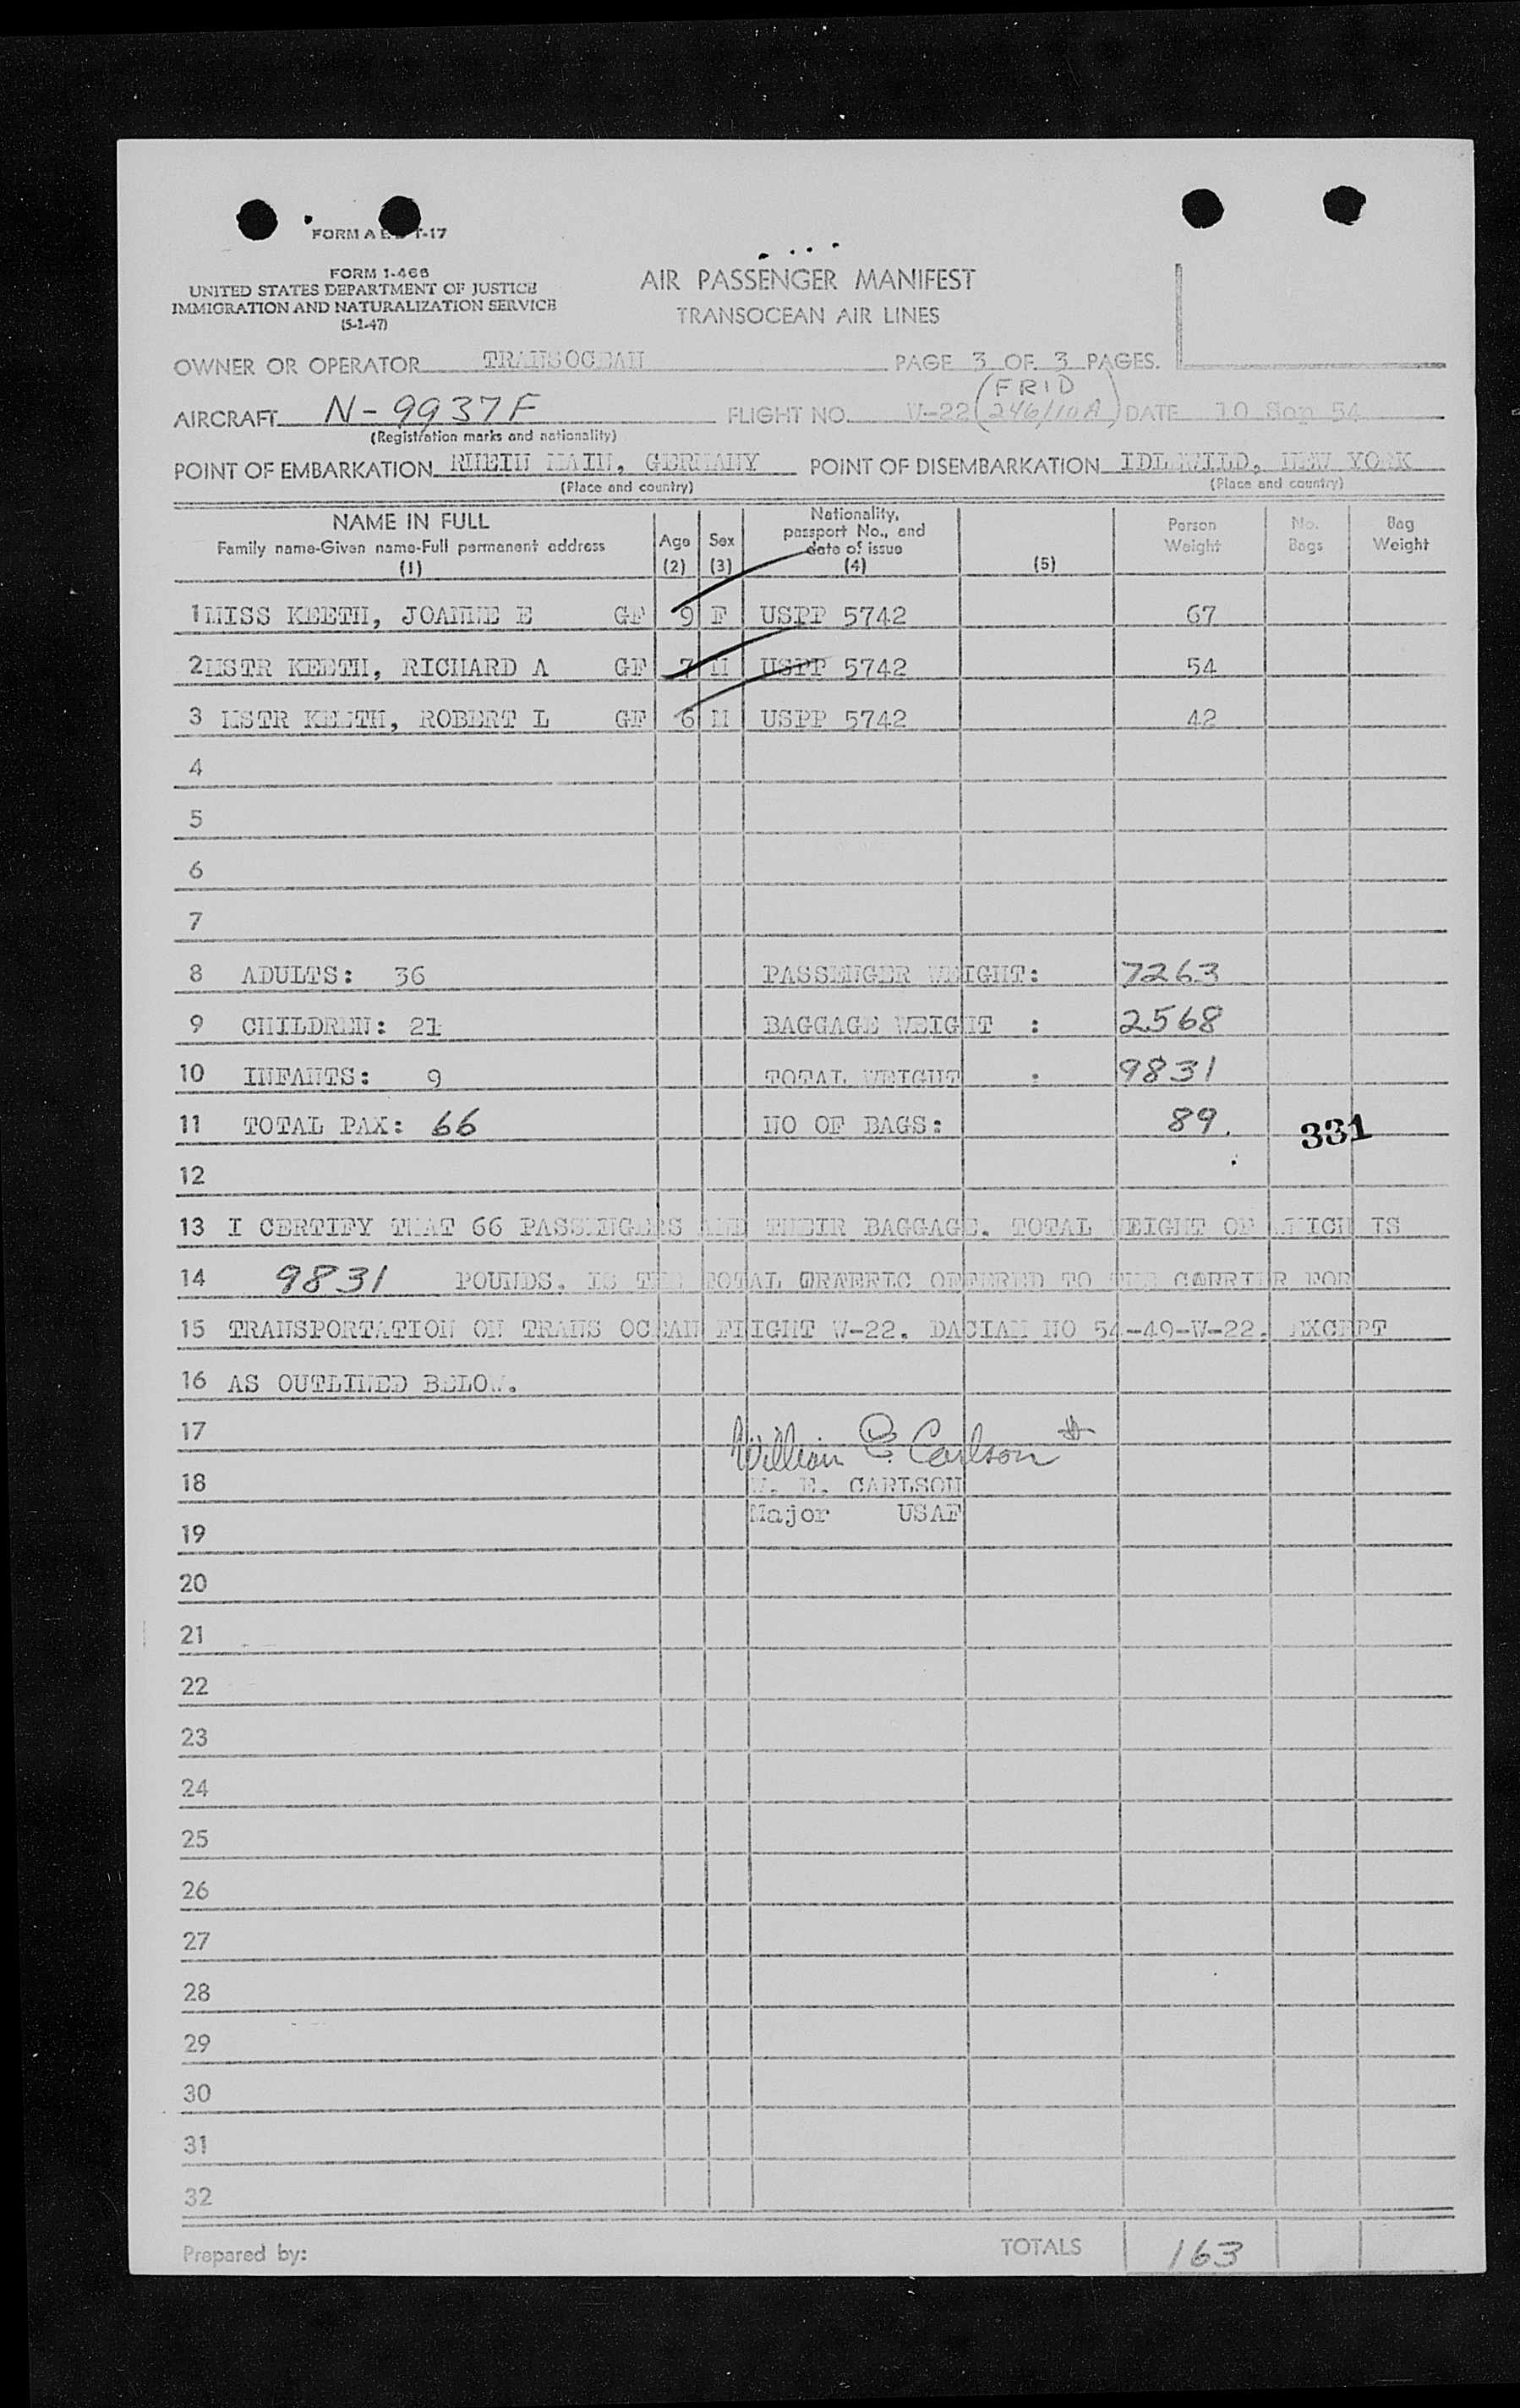 FORM A
FORM I-466
UNITED STATES DEPARTMENT OF JUSTICE
IMMIGRATION AND NATURALIZATION SERVICE
(5-1-47)
AIR PASSENGER MANIFEST
TRANSOCEAN AIR LINES
OWNER OR OPERATOR TRANSOCEAN PAGE 3 OF 3 PAGES.
AIRCRAFT N-9937F FLIGHT NO. W-22 (FRID 246/10A) DATE 10 Sep 54
(Registration marks and nationality)
POINT OF EMBARKATION RHEIN MAIN, GERMANY POINT OF DISEMBARKATION IDLEWILD, NEW YORK
(Place and country) (Place and country)
NAME IN FULL Family name-Given name-Full permanent address (1) Age (2) Sex (3) Nationality, passport No., and date of issue (4) (5) Person Weight No. Bags Bag Weight
1 MISS KEETH, JOANNE E GF 9 F USPP 5742 67
2 MSTR KEETH, RICHARD A GF 7 M USPP 5742 54
3 MSTR KEETH, ROBERT L GF 6 M USPP 5742 42
4
5
6
7
8 ADULTS: 36 PASSENGER WEIGHT: 7263
9 CHILDREN: 21 BAGGAGE WEIGHT : 2568
10 INFANTS: 9 TOTAL WEIGHT : 9831
11 TOTAL PAX: 66 NO OF BAGS: 89. 331
12
13 I CERTIFY THAT 66 PASSENGERS AND THEIR BAGGAGE. TOTAL WEIGHT OF WHICH IS
14 9831 POUNDS. IS THE TOTAL OFFERED TO THE FOR
15 TRANSPORTATION ON TRANS OCEAN FLIGHT W-22. DACIAM NO 54-49-W-22. EXCEPT
16 AS OUTLINED BELOW.
17 William E. Carlson
18 W. E. CARLSON
19 Major USAF
20
21
22
23
24
25
26
27
28
29
30
31
32
Prepared by: TOTALS 163